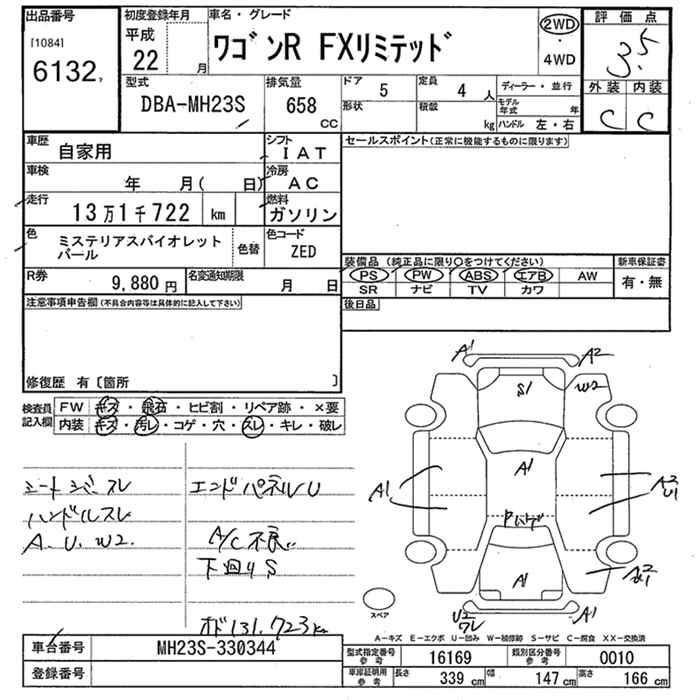 出品番号
[1084]
6132
初度登録年月
平成
22 月
車名・グレード
ワゴンR FXリミテッド
2WD
・
4WD
評価点
3.5
外装 内装
C C
型式
DBA-MH23S
排気量
658
CC
ドア 5
形状
定員 4 人
積載 kg
ディーラー・並行
モデル年式 年
ハンドル 左・右
車歴
自家用
シフト
IAT
車検
年 月( 日)
冷房
AC
走行
13万1千722 km
燃料
ガソリン
色
ミステリアスバイオレット
パール
色替
色コード
ZED
R券
9,880 円
名変通知期限
月 日
セールスポイント(正常に機能するものに限ります)
装備品 (純正品に限り○をつけてください)
PS PW ABS エアB AW
SR ナビ TV カワ
新車保証書
有・無
後日品
注意事項申告欄(不具合内容等は具体的に記入して下さい)
修復歴 有〔箇所 〕
検査員
記入欄
FW キズ・飛石・ヒビ割・リペア跡・×要
内装 キズ・汚レ・コゲ・穴・スレ・キレ・破レ
シートシバースレ
ハンドルスレ
A.U.W2.
エンドパネルU
A/C不良
下回りS
オド131,723km
A1
A2
S1
W2
A1
A1
A2
U1
A1
U2
ワレ
A1
スペア
A-キズ E-エクボ U-凹み W-補修跡 S-サビ C-腐食 XX-交換済
車台番号
MH23S-330344
登録番号
型式指定番号
参考
16169
類別区分番号
参考
0010
車庫証明用
参考
長さ 339 cm
幅 147 cm
高さ 166 cm